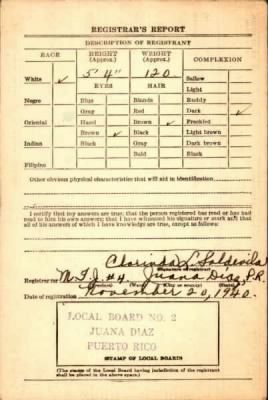 REGISTRAR'S REPORT
DESCRIPTION OF REGISTRANT
RACE HEIGHT (Approx.) WEIGHT (Approx.) COMPLEXION
White ✓ 5' 4" 120 Sallow
EYES HAIR Light
Negro Blue Blonde Ruddy
Gray Red Dark ✓
Oriental Hazel Brown ✓ Freckled
Brown ✓ Black Light brown
Indian Black Gray Dark brown
Bald Black
Filipino
Other obvious physical characteristics that will aid in identification
I certify that my answers are true; that the person registered has read or has had
read to him his own answers; that I have witnessed his signature or mark and that
all of his answers of which I have knowledge are true, except as follows:
Clarinda L.
Signature of registrar
Registrar for #4 Juana Diaz, P.R.
(Precinct) (Ward) (City or county) (State)
Date of registration November 20, 1940.
LOCAL BOARD NO. 2
JUANA DIAZ
PUERTO RICO
STAMP OF LOCAL BOARD
(The stamp of the Local Board having jurisdiction of the registrant
shall be placed in the above space.)